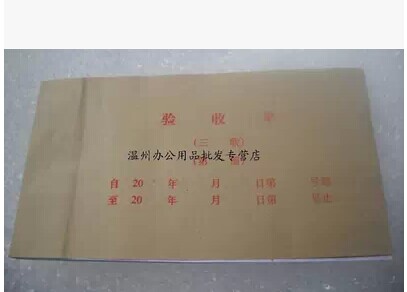 验 收 单
（三 联）
温州办公用品批发专营店
自20 年 月 日第 号起
至20 年 月 日第 号止